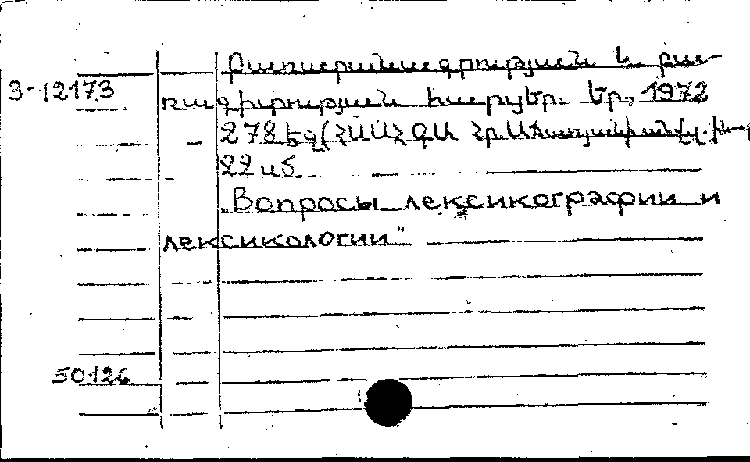 Բառարանագրության և բա-
3-12173
ռագիտության հարցեր. Եր., 1972
278 էջ (ՀՍՍՀ ԳԱ Հր. Աճառյանի անվ.
22 սմ
Вопросы лексикографии и
лексикологии"
50126